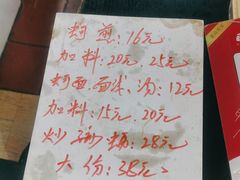 蚵煎:16元
加料:20元 25元
蚵面.面线.汤:12元
加料:15元.20元
炒 粿:28元
大份:38元